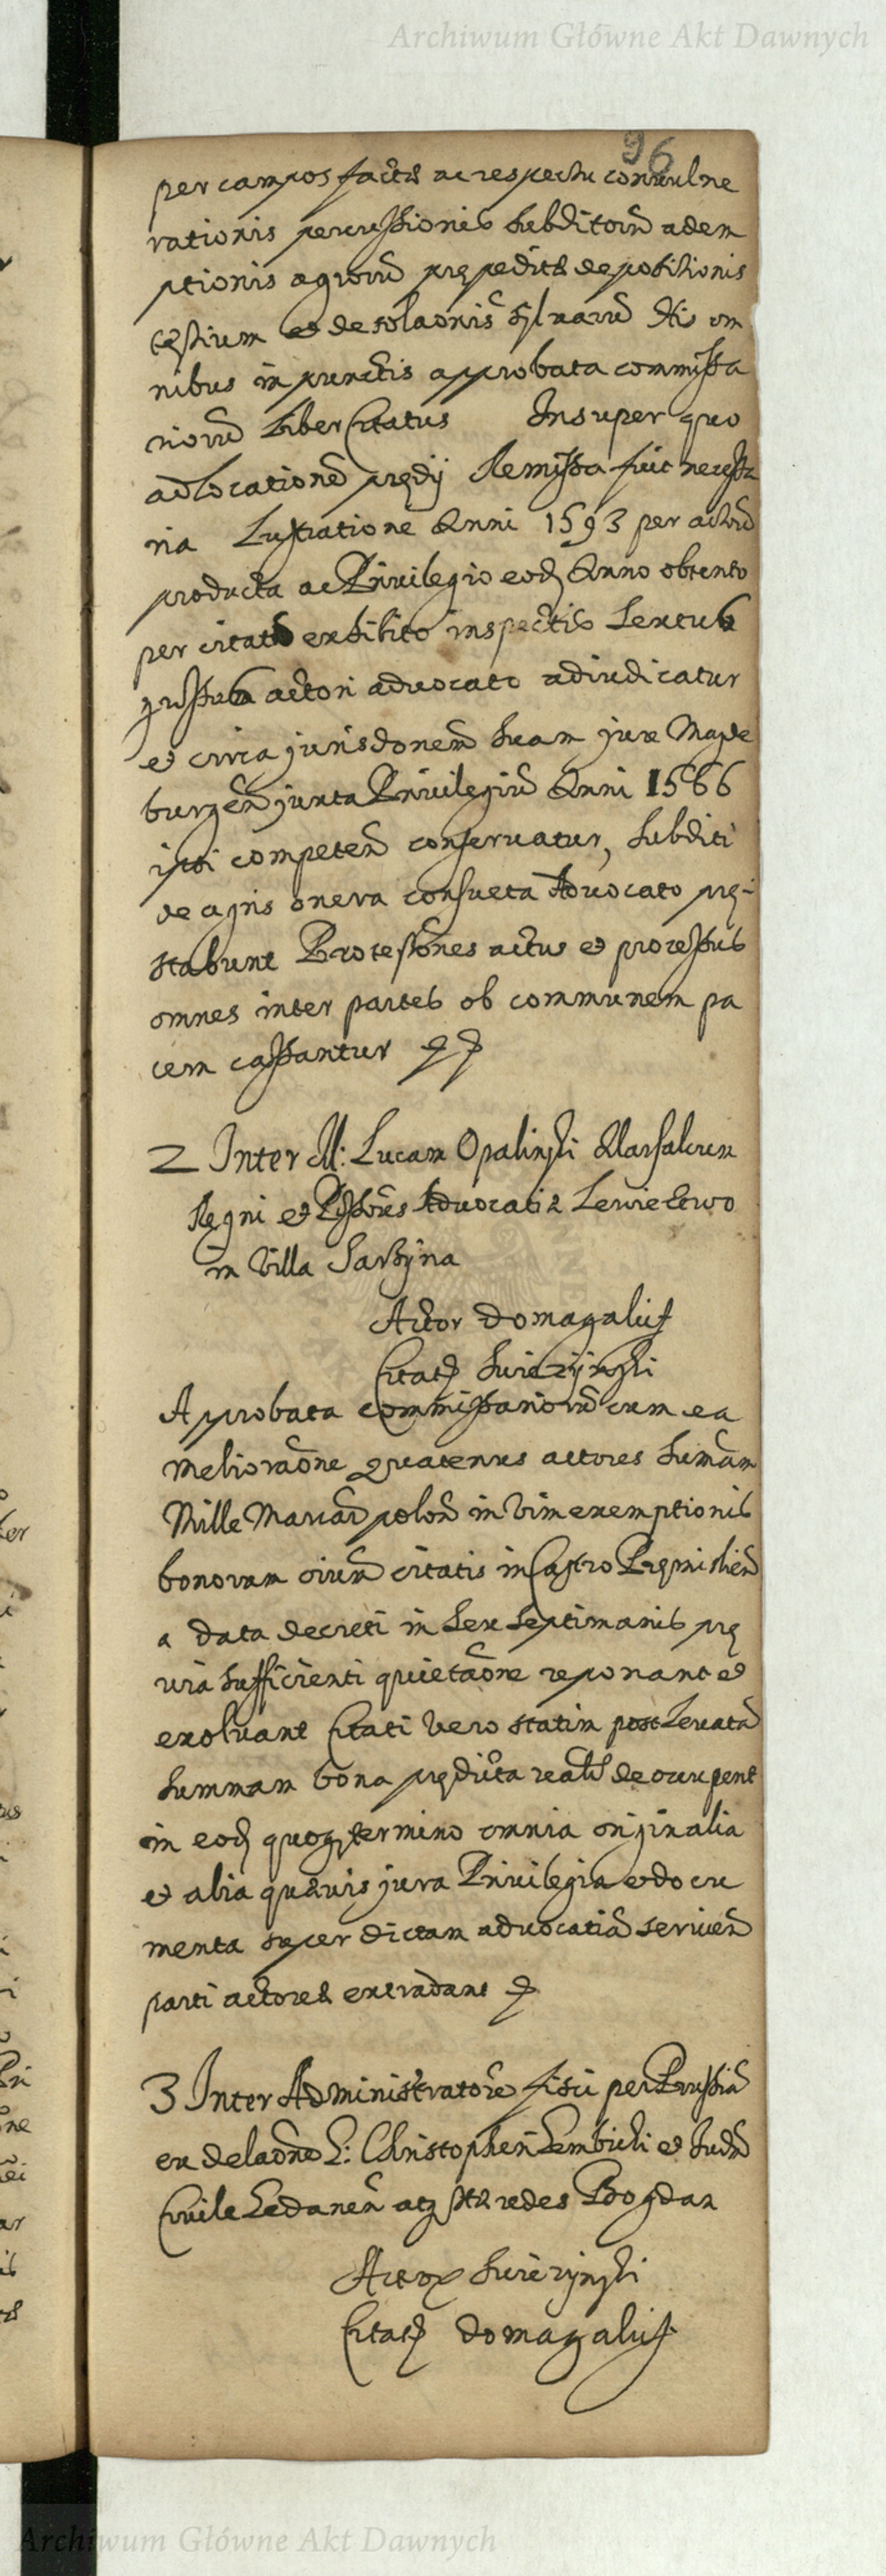 Archiwum Główne Akt Dawnych
96
per campos factis ac respectu convulne
rationis percussionis subditorū adem
ptionis agrorū prępeditæ depositionis
testium et desolaonis sylvarū Itis om
nibus in punctis approbata commissa
riorū liber Citatus Insuper quo
ad locationē prędij Remissa fuit necessa
ria Lustratione Anni 1593 per actorē
producta ac Privilegio eodę Anno obtento
per citatū exhibito inspectis Sextus
grossus actori advocato adiudicatur
et circa jurisdonem suam jure Magde
burgeñ juxta Privilegiū Anni 1566
ipsi competeñ conservatur, Subditi
de agris onera consueta Advocato prę-
stabunt Protestōnes actus et processus
omnes inter partes ob communem pa
cem cassantur
2 Inter M: Lucam Opalinski Marsalcum
Regni et Possores Advocatiæ
in Villa Sarzyna
Actor Domagalis
Citatę Swierzynski
Approbata commissariorū cum ea
melioraōne quatenus actores Summam
Mille Marcaɍ poloñ in vim exemptionis
bonorum citatis in Castro Pręmislieñ
a data decreti in sex septimanis prę
via sufficienti quietaōne reponant et
exolvant Citati vero statim post levatā
Summam bona prędicta realr̄ deoccupent
in eodę quoqʒ termino omnia originalia
et alia quævis jura Privilegia et docu
menta super dictam advocatiā servieñ
parti actoreæ extradant
3 Inter Administratorē fisci per Prussiā
ex delaōne G: Christopheri Zembicki et Iudm
Civile Gedaneñ atqʒ Hæredes Bogdan
Actor Swierzynski
Citatę Domagalis
Archiwum Główne Akt Dawnych